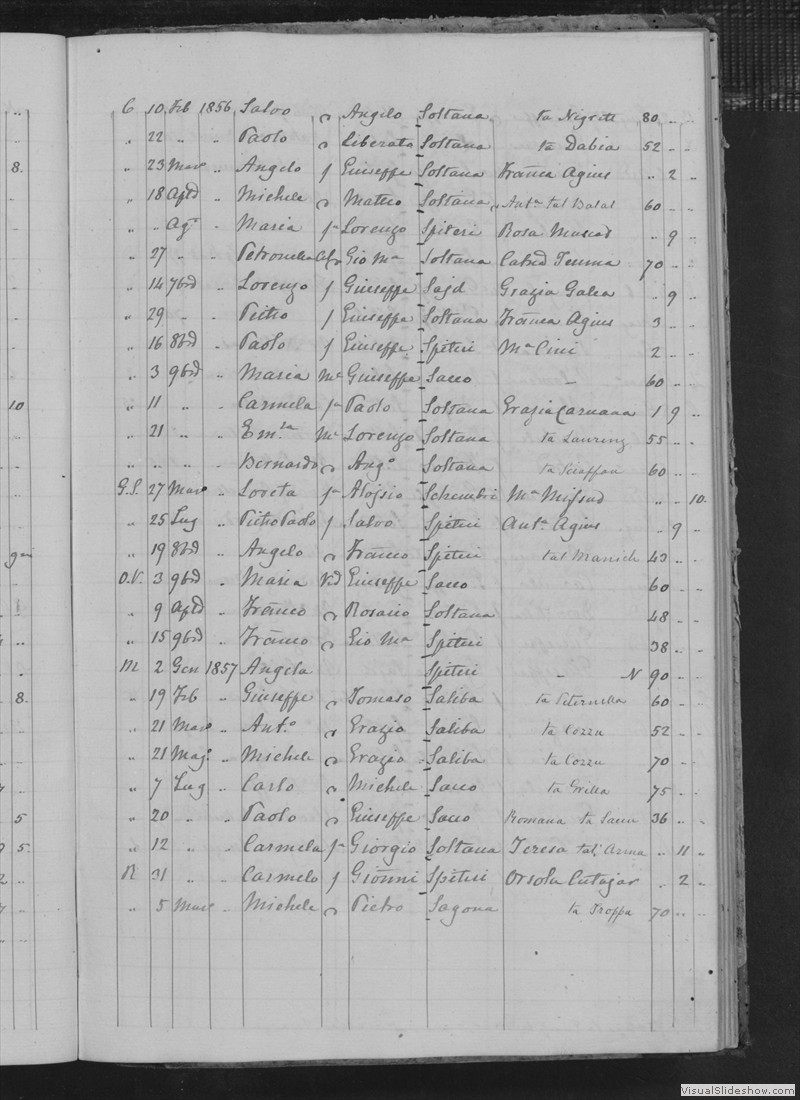 C 10 Feb 1856 Salvo Angelo Soltana ta Nigrett 80 „ „
„ 22 „ „ Paolo Liberato Soltana ta Dabia 52 „ „
8. „ 23 Mar „ Angelo f Giuseppe Soltana Franca Agius „ 2 „
„ 18 „ Michele Matteo Soltana 60 „ „
„ „ „ Maria Lorenzo Spiteri Rosa Muscad „ 9 „
„ 27 „ „ Gio Ma Soltana 70 „ „
„ 14 7bre „ Lorenzo f Giuseppe Sajd Grazia Galea „ 9 „
„ 29 „ „ Pietro f Giuseppe Soltana Franca Agius 3 „ „
„ 16 8bre „ Paolo f Giuseppe Spiteri Ma Cini 2 „ „
„ 3 9bre „ Maria Giuseppe Sacco – 60 „ „
10 „ 11 „ „ Carmela Paolo Soltana Grazia Caruana 1 9 „
„ 21 „ „ Lorenzo Soltana 55 „ „
„ „ „ „ Bernardo Ang° Soltana 60 „ „
G.P. 27 Mar „ Loreta Alojsio Schembri Ma Mifsud „ „ 10
„ 25 Lug „ Pietro Paolo f Salvo Spiteri Anta Agius „ 9 „
„ 19 8bre „ Angelo Franco Spiteri 43 „ „
O.V. 3 9bre „ Maria Giuseppe Sacco 60 „ „
„ 9 „ Franco Rosario Soltana 48 „ „
„ 15 9bre „ Franco Gio Ma Spiteri 38 „ „
M 2 Gen 1857 Angela Spiteri – N 90 „ „
8. „ 19 Feb „ Giuseppe Tomaso Saliba ta Peternella 60 „ „
„ 21 Mar „ Ant° Grazio Saliba ta Cozzu 52 „ „
„ 21 Mag. „ Michele Grazio Saliba ta Cozzu 70 „ „
„ 7 Lug „ Carlo Michele Sacco ta Grilla 75 „ „
5 „ 20 „ „ Paolo Giuseppe Sacco Romana ta 36 „ „
5. „ 12 „ „ Carmela Giorgio Soltana Teresa „ 11 „
R 31 „ „ Carmelo f Gioñni Spiteri Orsola Cutajar „ 2 „
„ 5 Mar „ Michele Pietro Sagona ta Troppa 70 „ „
VisualSlideshow.com